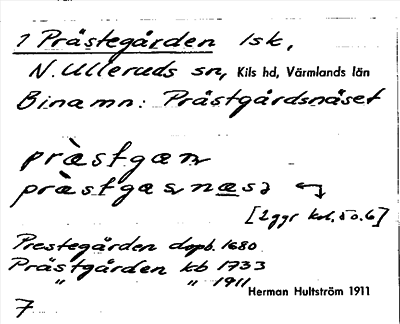 1 Prästegården 1sk,
N. Ulleruds sn, Kils hd, Värmlands län
Binamn: Prästgårdsnäset
præstgan
[2ggr kol. 5 o. 6]
Prestegården dopb. 1680
Prästgården kb 1733
" " 1911
Herman Hultström 1911
7